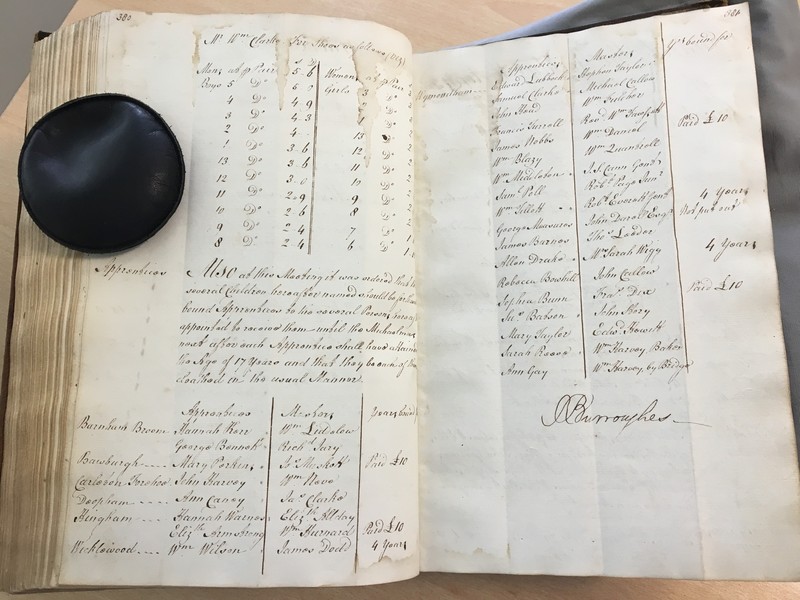 380
Mr Wm Clarke For Shoes as follows, Viz.
s D
Mens at p Pair 5 " 6 Womens at p Pair
Boys 5 Do Girls
4 Do 4 9
3 Do 4 3
2 Do 4 - 13 Do
1 Do 3 " 6 12 Do
13 Do 3 " 6 11 Do
12 Do 3 " 0 10 Do
11 Do 2 " 9 9 Do
10 Do 2 " 6 8 Do
9 Do 2 - 4 7 Do
8 Do 2 - 4 6 Do
Apprentices Also at this Meeting it was ordered that the
several Children hereafter named should be
bound Apprentices to the several Persons
appointed to receive them until the Michaelmas
next after each Apprentice shall have attained
the Age of 17 Years and that they be
cloathed in the usual Manner
Apprentices Masters Years bound
Barnham Broom Hannah Wm Lidelow
George Bennett Richd Jary
Bawburgh Mary Perkins Jos Muskett Paid £10
Carleton Forehoe John Harvey Wm Nave
Deopham Ann Caney Jas Clarke
Hingham Hannah Warnes Elizth Allday
Elizth Armstrong Wm Hurnard Paid £10
Wicklewood Wm Wilson James Dodd 4 Years
384
Apprentices Masters Yrs bound for
Wymondham Edward Lubbock Stephen Taylor
Samuel Clarke Michael Callow
John Wm
Francis Turrell Revd Wm Paid £10
James Hobbs Wm Daniel
Wm Blazy Wm Quantrell
Wm Middleton J. S. Cann Gent
Saml Pell Robt Page Junr
Wm Tillett Robt Everett Gent 4 Years
George John Esqr Not put out
James Barnes Thos Leader
Allen Drake Mrs Sarah Wigg 4 Years
Rebecca Bowhill John Callow
Sophia Bunn Fras Dix Paid £10
Jas Batson John Skory
Mary Taylor Edwd Howett
Sarah Reeve Wm Harvey, Baker
Ann Gay Wm Harvey, by Bridge
Burroughes